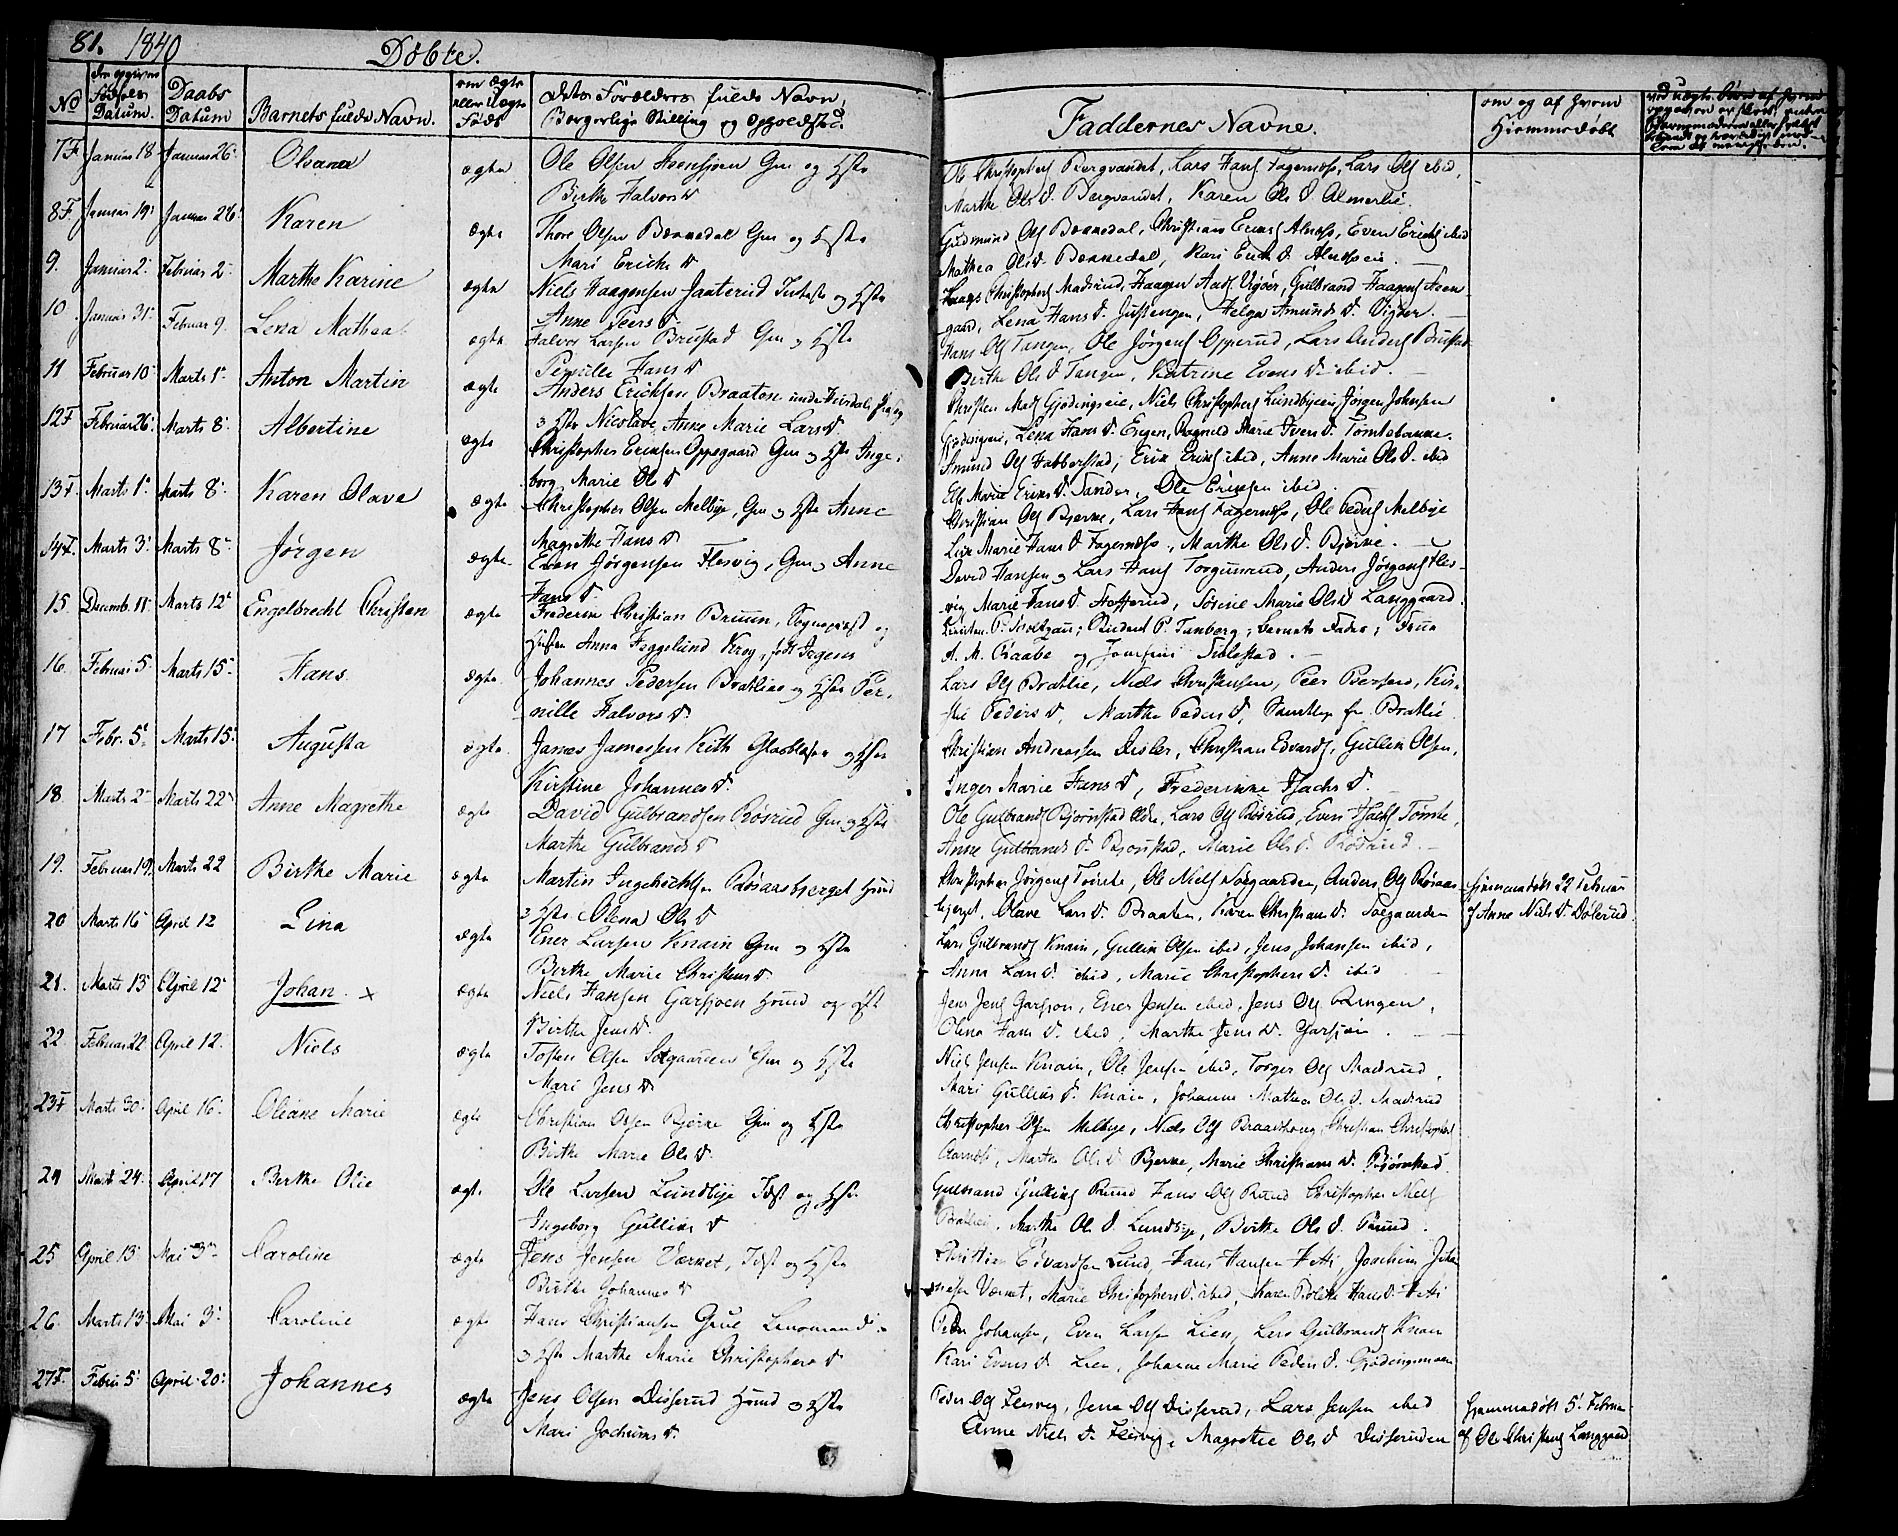 81. 1840 Döbte.
No
Fødsels Datum.
Daabs Datum
Barnets fulde Navn.
om ægte eller Uægte Født
Forældres fulde Navn, Borgerlige Stilling og Opholdsted.
Faddernes Navne.
om og af hvem Hjemmedøbt
7F Januar 18 Januar 26 Oleana ægte Ole Olsen Gm og Hstr
Birthe Halvors D
Ole Christophers Bergvandet, Lars Hans Fagernæss, Lars Ols ibid,
Marthe Ols D. Bergvandet, Karen Ols D. Almerlie.
8F. Januar 19 Januar 26 Karen ægte Thore Olsen Bænnedal Gm og Hstr
Mari Erichs D
Gudmund Ols Bænnedal, Christian Erichs Alnæss, Even Erichs ibid
Mathea Ols D. Bænnedal, Kari Erichs D.
9. Januar 2 Februar 2 Marthe Karine ægte Niels Haagensen Jaaterud Inderste og Hstr
Anne Peers D.
Christophers Madsrud, Haagen Vigøer, Gulbrand Haagens Steen-
gaard, Lena Hans D. Justengen, Helga Amunds D. Vigøer.
10 Januar 31 Februar 9. Lena Mathea ægte Halvor Larsen Brustad Gm og Hstr
Pernille Hans D
Hans Ols Tangen, Ole Jørgens Opperud, Lars Anders Brustad
Berthe Ols D Tangen, Katrine Evens D. ibid.
11 Februar 10 Marts 1 Anton Martin ægte Anders Erichsen Braaton
og Hstr Nicolave Anne Marie Lars D
Christen Mads Gjødingseie, Niels Christophers Lundbyeie, Jørgen Johnsen
Lena Hans D. Engen, Ragnild Marie Ivers D. Tømtebonne.
12F Februar 26 Marts 8 Albertine ægte Christopher Ericksen Oppegaard Gm og Hstr Inge-
borg Marie Ols D
Amund Ols Habberstad, Erik Eriks ibid, Anne Marie Ols D. ibid
Else Marie Eriks D. Sander, Ole Ericksen ibid.
13F. Marts 1 Marts 8 Karen Olave ægte Christopher Olsen Melbye, Gm og Hstr Anne
Magrethe Hans D
Christian Ols Bjerke, Lars Hans Fagernæss, Ole Peders Melbye
Marie Hans D Fagernæss, Marthe Ols D. Bjerke.
14F. Marts 3 Marts 8 Jørgen ægte Even Jørgensen Flesvig, Gm og Anne
Hans D.
David Hansen og Lars Hans Torgunrud, Anders Jørgens Fles-
vig Marie Hans D. Hofferud, Sorine Marie Ols D Langgaard.
15. Decemb. 11 Marts 12 Engelbrecht Christian ægte Frederik Christian Bruun, Sognepræst og
Hustru Anna Heggelund Krog, født Irgens
Barnets Fader; Frue
A. M. Raabe og
16. Februar 5 Marts 15 Hans. ægte Johannes Pedersen Bratlie og Hstr Per-
nille Halvors D.
Lars Ols Bratlie, Niels Christensen, Peer Persen, Kir-
stie Peders D, Marthe Peders D, Samtlige fra Bratlie
17 Febr. 5 Marts 15 Augusta ægte James Jamessen Keith Glasblæser og Hstr
Kirstine Johannes D.
Christian Andreassen Disler, Christian Edvards, Gullik Olsen,
Inger Marie Hans D, Frederikke Isachs D.
18 Marts 2 Marts 22 Anne Magrethe ægte David Gulbrandsen Røsrud Gm og Hstr
Marthe Gulbrands D
Ole Gulbrands Bjørnstad Eldre, Lars Ols Røsrud, Even Isachs Tømte,
Anne Gulbrands D. Bjørnstad, Marie Ols D. Rødsrud.
19. Februar 19 Marts 22 Birthe Marie ægte Martin Ingebrechtsen Raasasbjerget Huusmd
og Hstr Olena Ols D
Christopher Jørgens Tømte, Ole Niels Solgaarden, Anders Ols Raasas-
bjerget, Olave Lars D. Braaten, Karen Christians D. Solgaarden
Hjemmedøbt 22 Februar
af Anne Niels D. Dølerud
20 Marts 16 April 12 Lina ægte Ener Larsen Knain Gm og Hstr
Berthe Marie Christens D
Lars Gulbrands Knain, Gullik Olsen ibid, Jens Johansen ibid,
Anna Lars D. ibid, Marie Christophers D. ibid
21. Marts 13 April 12 Johan. x ægte Niels Hansen Garsjøen Huusmd og Hst
Birthe Jens D.
Jens Jens Garsjøen, Ener Jensen ibid, Jens Ols Ringen,
Olena Hans D. ibid, Marthe Jens D. Garsjøen.
22 Februar 22 April 12. Niels ægte Tosten Olsen Solgaarden Gm og Hstr
Mari Jens D
Niels Jensen Knain, Ole Jensen ibid, Torger Ols Madsrud,
Mari Gulliks D. Knain, Johanne Mathea Ols D. Madsrud
23F Marts 30 April 16 Oleane Marie ægte Christian Olsen Bjerke Gm og Hstr
Birthe Marie Ols D.
Christopher Olsen Melbye, Niels Ols Braadhoug, Christian Christophers
Aarnæs, Marthe Ols D. Bjerke, Marie Christians D. Bjørnstad.
24 Marts 24. April 17 Berthe Olie ægte Ole Larsen Lundbye Idst og Hstr
Ingeborg Gulliks D
Gulbrand Gulliks Ruud Hans Ols Ruud Christopher Niels
Bratlie, Marthe Ols D. Lundbye, Birthe Ols D. Ruud.
25 April 13 Mai 3 Caroline ægte Jens Jensen Værnet, Idst og Hstr
Birthe Johannes D
Christian Edvardsen Lund, Hans Hansen Joachim Joha-
nesen Værnet, Marie Christophers D. ibid, Karen Hans D.
26. Marts 13 Mai 3 Caroline ægte Hans Christiansen Grue
og Hstr Marthe Marie Christophers D
Peder Johansen, Even Larsen Lien, Lars Gulbrands Knain
Kari Evens D Lien, Johanne Marie Peders D. Gjødingsmoen
27F. Febru 5 April 20 Johannes ægte Jens Olsen Disserud Huusmd og Hstr
Mari Jochums D.
Peder Ols Flesvig, Jens Ols Disserud, Lars Jensen ibid
Anne Niels D. Flesvig, Magrethe Ols D Disseruden
Hjemmedøbt 5 Februar
af Ole Christens Langgaard